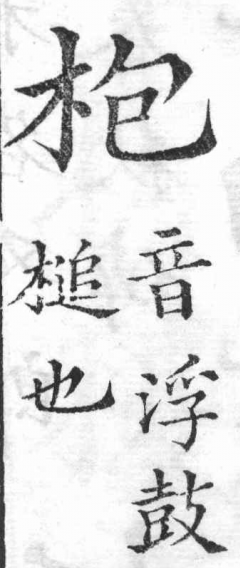 枹
音浮鼓
槌也